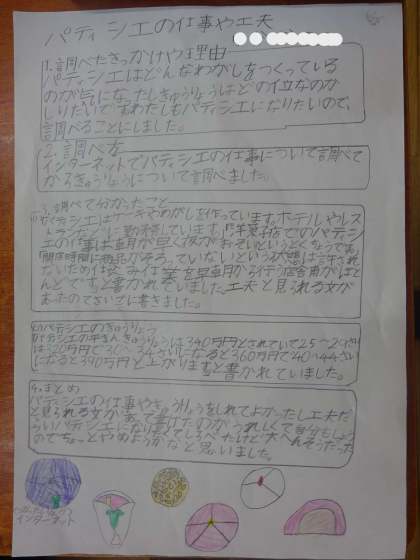 パティシエの仕事や工夫
1.調べたきっかけや理由
パティシエはどんなわがしをつくっている
のが気にな たしきゅうりょうはどの位なのか
しりたいで わたしもパティシエになりたいので、
調べることにしました。
2.調べ方
インターネットでパティシエの仕事について調べて
からきゅうりょうについて調べました。
3.調べて分かったこと
パティシエはケーキやわがしを作っています。ホテルやレス
トランなどに勤務しています。「洋菓子店でのパティシ
エの仕事は朝が早く夜がおそいというとくちょうです。
「開店時間に商品がそろっていないという状態は許され
ないため仕込みは業を早朝から行う店舗がほと
んどです」と書かれていました。工夫と見られる文が
あったのでさいごに書きました。
(2)パティシエのきゅうりょう
パティシエの平きんきゅうりょうは340万円とされていて25～29さい
は320万円で30～34さいになると360万円で40～44さい
になると390万円と上がりますと書かれていました。
4.まとめ
パティシエの仕事やきゅうりょうをしれてよかったし工夫だ
と見られる文があって書けたのがうれしくて自分もしょう
らいパティシエになりたいなってしらべたけど大へんそうだった
のでちょっとやめようかなと思いました。
インターネット